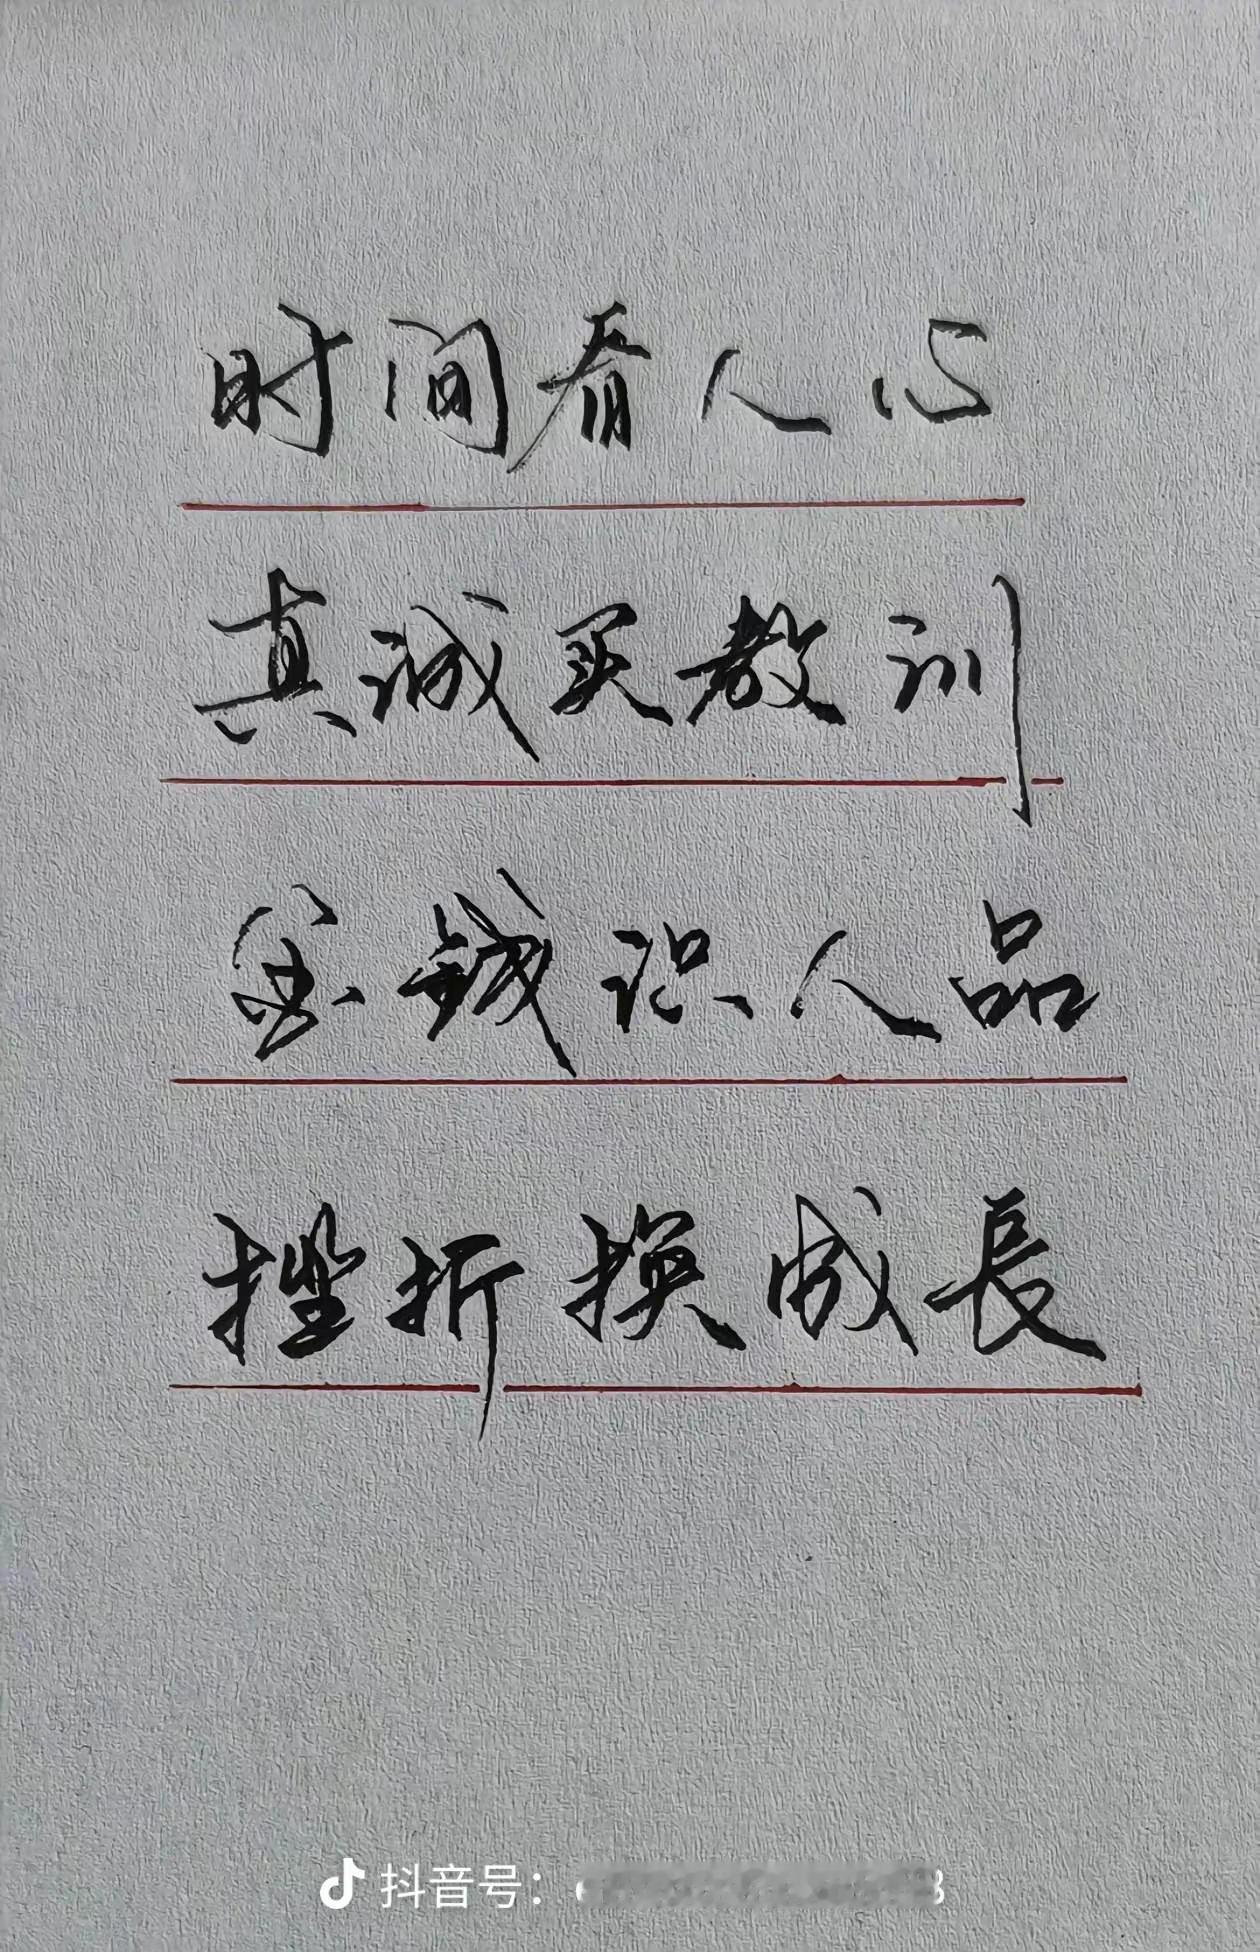 时间看人心
真诚买教训
金钱识人品
挫折换成長
抖音号：